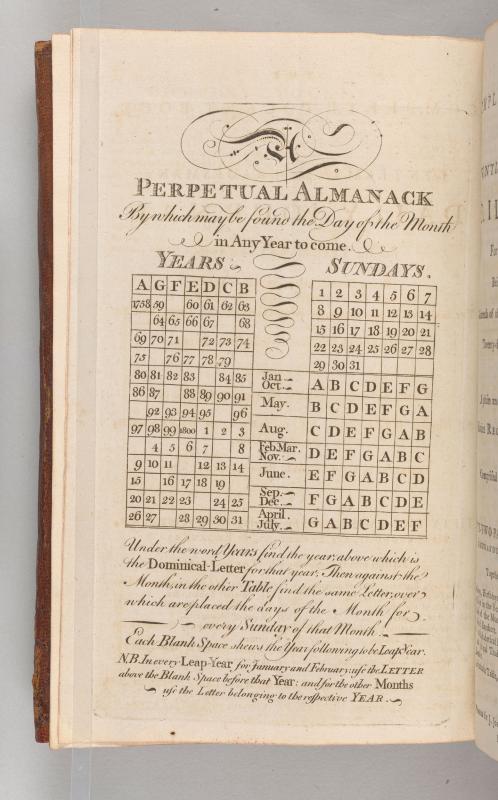 A
PERPETUAL ALMANACK
By which may be found the Day of the Month
in Any Year to come.
YEARS
A G F E D C B
1758 59 60 61 62 63
64 65 66 67 68
69 70 71 72 73 74
75 76 77 78 79
80 81 82 83 84 85
86 87 88 89 90 91
92 93 94 95 96
97 98 99 1800 1 2 3
4 5 6 7 8
9 10 11 12 13 14
15 16 17 18 19
20 21 22 23 24 25
26 27 28 29 30 31
SUNDAYS.
1 2 3 4 5 6 7
8 9 10 11 12 13 14
15 16 17 18 19 20 21
22 23 24 25 26 27 28
29 30 31
Jan.
Oct. A B C D E F G
May. B C D E F G A
Aug. C D E F G A B
Feb. Mar.
Nov. D E F G A B C
June. E F G A B C D
Sep.
Dec. F G A B C D E
April.
July. G A B C D E F
Under the word Years find the year, above which is
the Dominical-Letter for that year. Then against the
Month, in the other Table find the same Letter, over
which are placed the days of the Month for
every Sunday of that Month.
Each Blank Space shews the Year following to be Leap Year.
N.B. In every Leap-Year for January and February: use the LETTER
above the Blank Space before that Year: and for the other Months
use the Letter belonging to the respective YEAR.